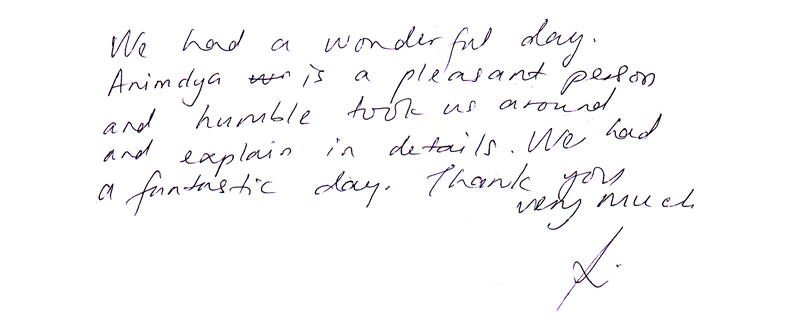 We had a wonderful day.
Animdya is a pleasant person
and humble took us around
and explain in details. We had
a fantastic day. Thank you
very much